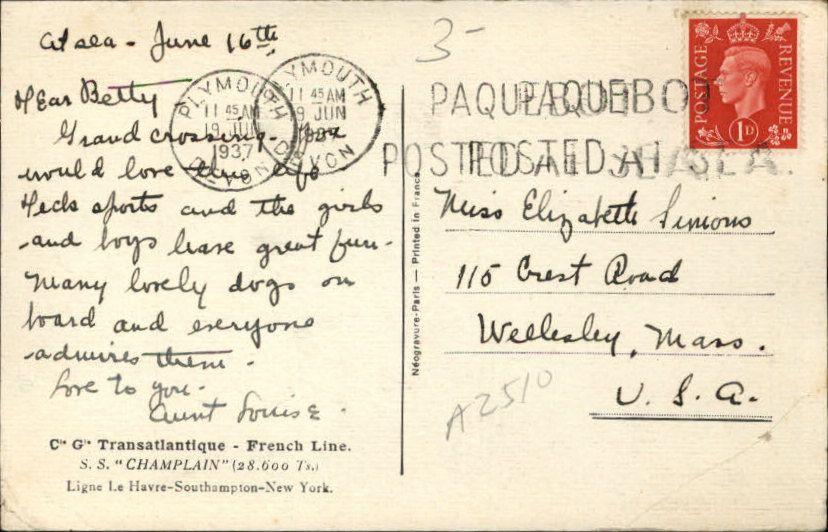 at sea - June 16th,
Dear Betty
Grand crossing - You
would love this life
Deck sports and the girls
and boys have great fun -
Many lovely dogs on
board and everyone
admires them.
Love to you -
Aunt Louise.
Cie Gle Transatlantique - French Line.
S. S. "CHAMPLAIN" (28.600 Ts.)
Ligne Le Havre-Southampton-New York.
Néogravure-Paris — Printed in France
3-
PLYMOUTH
11 45 AM
19 JUN
1937
DEVON
PLYMOUTH
11 45 AM
19 JUN
1937
DEVON
PAQUEBOT
POSTED AT SEA.
PAQUEBOT
POSTED AT SEA.
POSTAGE
REVENUE
1D
Miss Elizabeth Simons
115 Crest Road
Wellesley, Mass.
U. S. A.
A2510